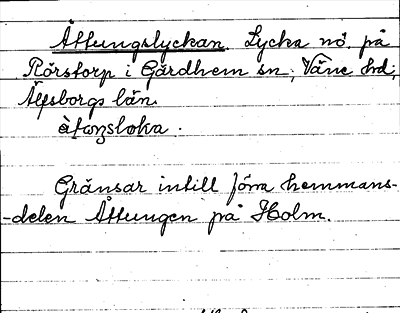 Åttungslyckan. Lycka nö. på
Rörstorp i Gärdhem sn; Väne hd;
Älfsborgs län.
åtoŋsloka.
Gränsar intill förra hemmans-
-delen Åttungen på Holm.